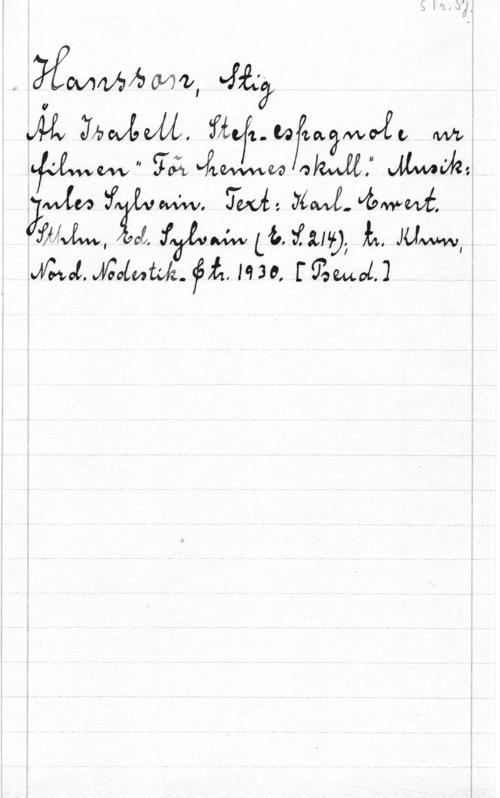 Str. Sj.
Hansson, Stig
Åh Isabell. Step-espagnole ur
filmen "För hennes skull". Musik:
Jules Sylvain. Text: Karl-Ewert.
Sthlm, Ed. Sylvain (E.S.214); tr. Khvn,
Nord. Nodestik. tr. 1930. [Pseud.]